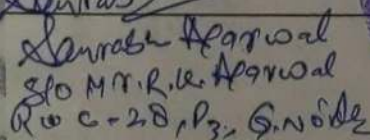 Saurabh Agarwal
S/o Mr. R.K. Agarwal
R/o C-28, P3, G.Noida